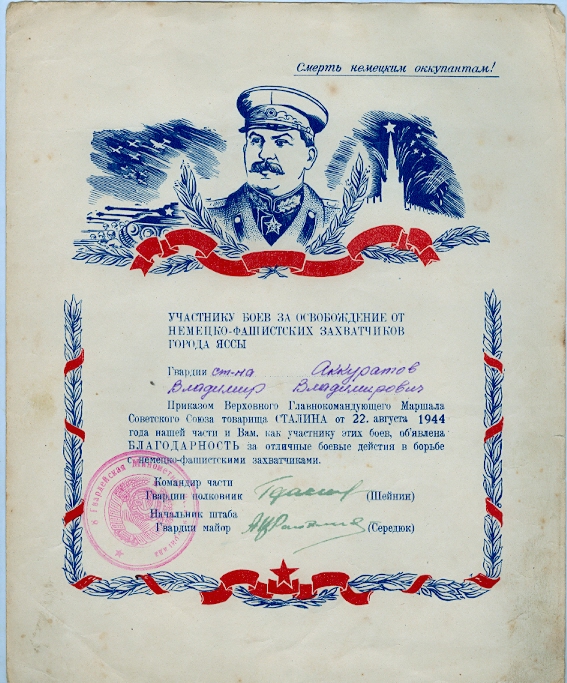 Смерть немецким оккупантам!
УЧАСТНИКУ БОЕВ ЗА ОСВОБОЖДЕНИЕ ОТ
НЕМЕЦКО-ФАШИСТСКИХ ЗАХВАТЧИКОВ
ГОРОДА ЯССЫ
Гвардии ст-на Аккуратов
Владимир Владимирович
Приказом Верховного Главнокомандующего Маршала
Советского Союза товарища СТАЛИНА от 22. августа 1944
года нашей части и Вам, как участнику этих боев, об'явлена
БЛАГОДАРНОСТЬ за отличные боевые дейстия в борьбе
с немецко-фашистскими захватчиками.
Командир части
Гвардии полковник (Шейнин)
Начальник штаба
Гвардии майор (Середюк)
Гвардейская